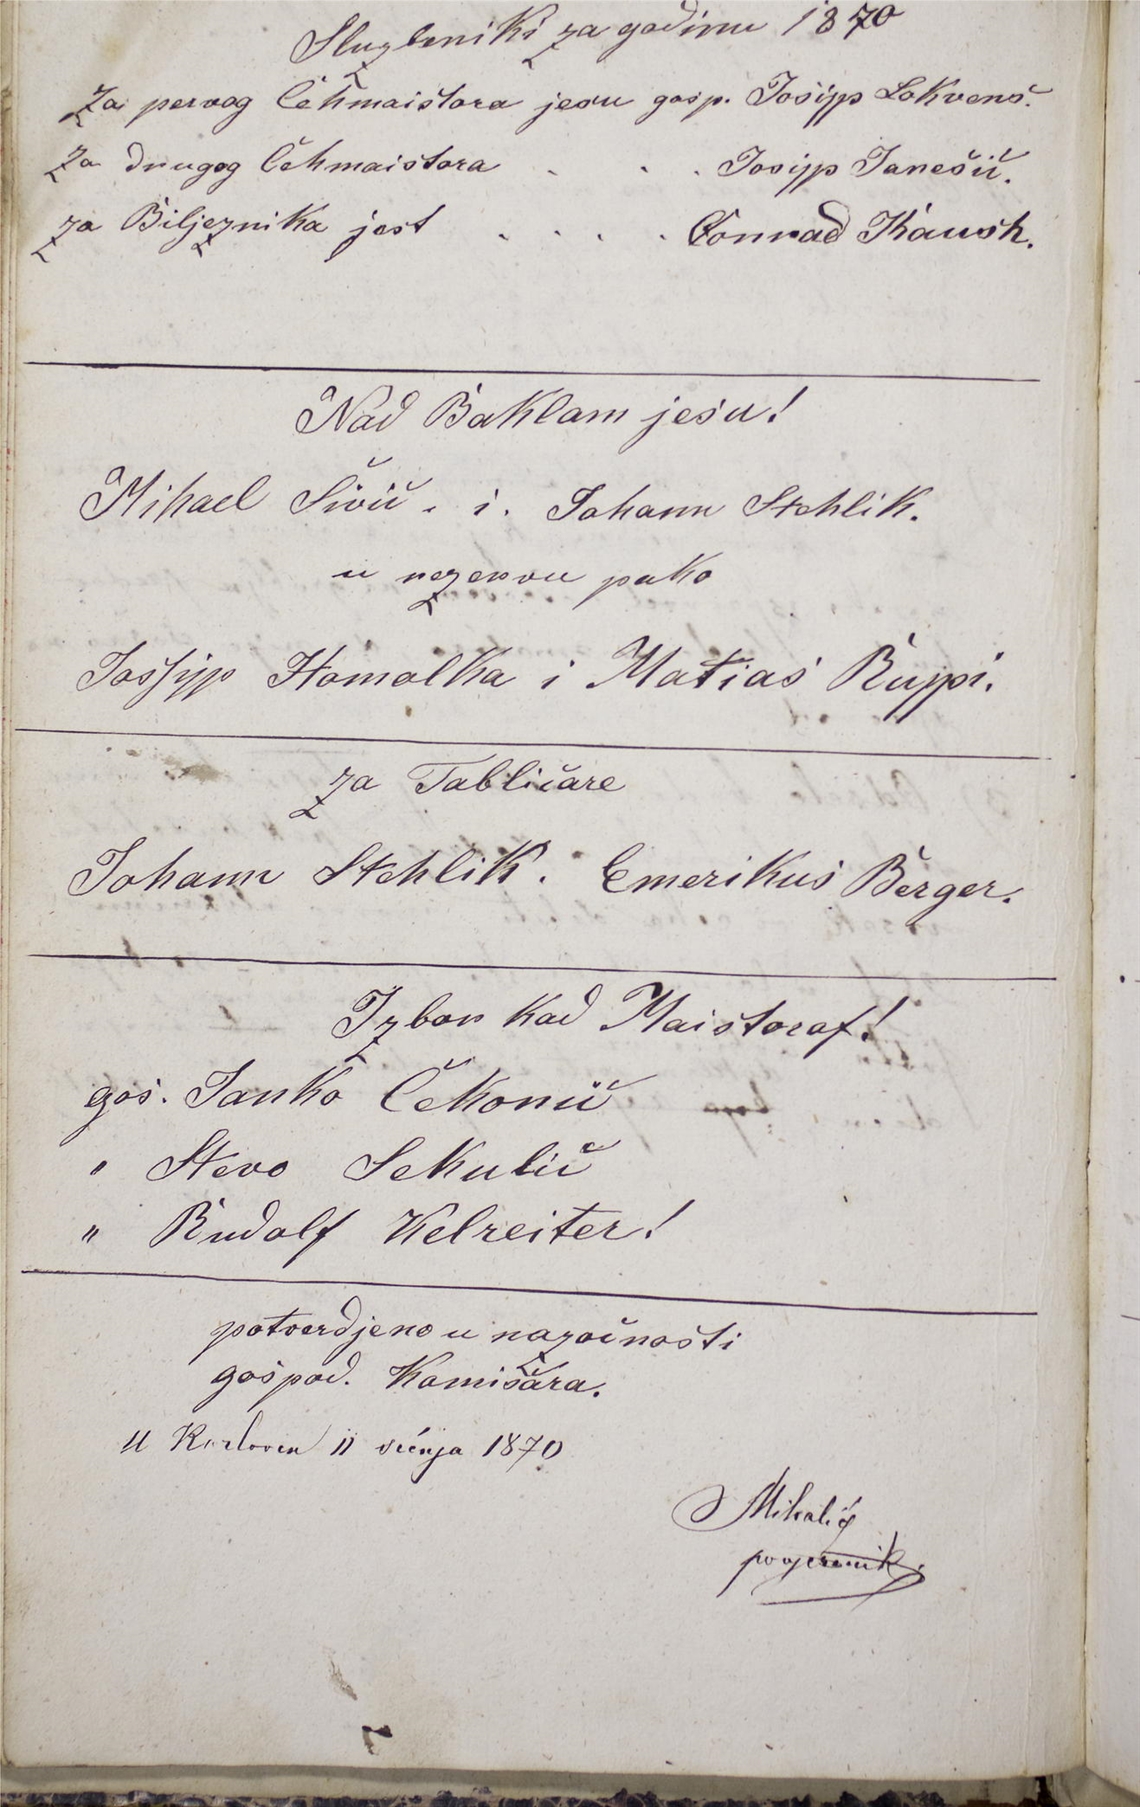 Službeniki za godinu 1870
Za pervog Čehmaistora jesu gosp. Josipp Lokvenc.
Za drugog Čehmaistora . . . Josipp Janešič.
za Bilježnika jest . . . . Conrad Kaush.
Nad Baklam jesu!
Mihael Šivič. i. Johann Stehlik.
u rezervu pako
Jossipp Homolka i Matias Ruppi.
Za Tabličare
Johann Stehlik. Emerikus Berger.
Izbor kod Maistoraf!
gos. Janko Čekonič
" Stevo Sekulič
" Rudolf Kelreiter!
potverdjeno u nazočnosti
gospod. Komišara.
U Karlovcu 11 1870
Mihalić
povjerenik.